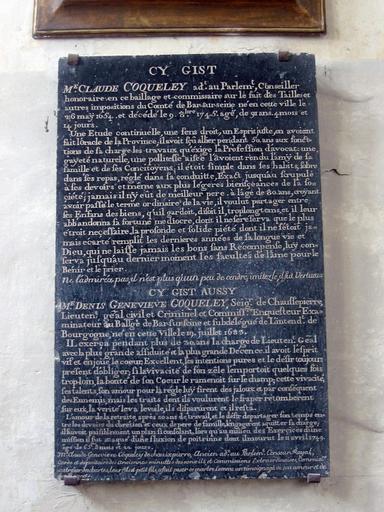 CY GIST
Mre. CLAUDE COQUELEY adt. au Parlemt. Conseiller
honoraire en ce bailliage et commissaire sur le fait des Tailles et
autres impositions du Comté de Bar-sur-seine né en cette ville le
26 may 1654. et décédé le 9. 8bre. 1745. agé, de 91 ans. 4 mois et
14 jours.
Une Etude continuelle, une sens droit, un Esprit juste, en avoient
fait l'oracle de la Province, il avoit sçu allier pendant 50 ans aux fonc-
tions de sa charge les travaux qu'exige la Profession d'avocat: une
gayeté naturelle, une politesse aisée l'avoient rendu l'amy de sa
famille et de ses Concitoyens, il étoit simple dans ses habits, sobre
dans ses repas, réglé dans sa conduitte, Exact jusqu'au scrupule
a ses devoirs et même aux plus légeres bienséances de la so-
cieté; jamais il n'y eut de meilleur pere: à l'age de 80 ans, croyant
avoir passé le terme ordinaire de la vie, il voulut partager entre
ses Enfans des biens, qu'il gardoit, disoit il, trop longtems, et il leur
abbandonna sa fortune médiocre, dont il ne se réserva que le plus
étroit necessaire, la profonde et solide pieté dont il ne s'étoit ja-
mais écarté remplit les dernieres années de sa longue vie et
Dieu, qui ne laisse jamais les bons sans Récompense, luy con-
serva jusqu'au dernier moment les facultés de l'âme pour le
Benir et le prier.
ne l'admirés pas, il n'est plus qu'un peu de cendre, imités le, il dut Vertueux
CY GIST AUSSY
Mre. DENIS GENEVIEVE COQUELEY, Seigr. de Chaussepierre,
Lieutent. gēāl civil et Criminel et Commissre. Enquesteur Exa-
minateur au Balge de Bar sur seine et subdélégué de L'intendt. de
Bourgogne, né en cette Ville le 19. juillet 1682.
IL exerça pendant plus de 20 ans la charge de Lieutent. Gēāl
avec la plus grande assiduité et la plus grande Decence. il avoit l'esprit
vif et enjoüé, le coeur Excellent, les intentions pures et le desir toujours
présent d'obliger, si la vivacité de son zèle l'emportoit quelques fois
trop loin, la bonté de son Coeur le ramenoit sur le champ; cette vivacité,
ses talents, son amour pour la régle luy firent des jaloux et par conséquent
des Ennemis, mais les traits dont ils voulurent le fraper retomberent
sur eux, la verité leva le voile, ils disparurent et il resta.
L'amour de la retraite, après 20 ans de travail, et le desir de partager son temps entre
les devoirs du chrétien et ceux de pere de famille, l'engagerent à quitter sa charge,